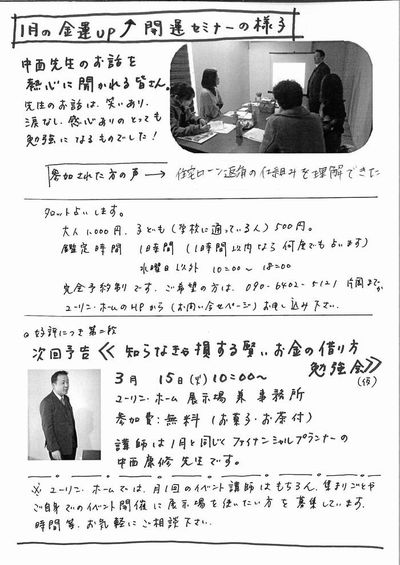 1月の金運up↑開運セミナーの様子
中西先生のお話を
熱心に聞かれる皆さん。
先生のお話は、笑いあり、
涙なし、感心ありのとっても
勉強になるものでした!
参加された方の声 → 住宅ローン返済の仕組みを理解できた
タロット占いします。
大人1,000円、子ども(学校に通っている人)500円。
鑑定時間 1時間(1時間以内なら何度でも占います)
水曜日以外 10:00~18:00
完全予約制です。ご希望の方は、090-6402-5121 片岡まで
ユーリン・ホームのHPから(お問い合せページ)お申し込み下さい。
◎好評につき第二段
次回予告《知らなきゃ損する賢いお金の借り方
勉強会》(仮)
3月 15日 10:00~
ユーリン・ホーム 展示場兼事務所
参加費:無料(お菓子・お茶付)
講師は1月と同じファイナンシャルプランナーの
中西康修先生です。
※ユーリン・ホームでは、月1回のイベント講師はもちろん、集まりごとや
ご自身でのイベント開催に展示場を使いたい方を募集しています。
時間等、お気軽にご相談下さい。